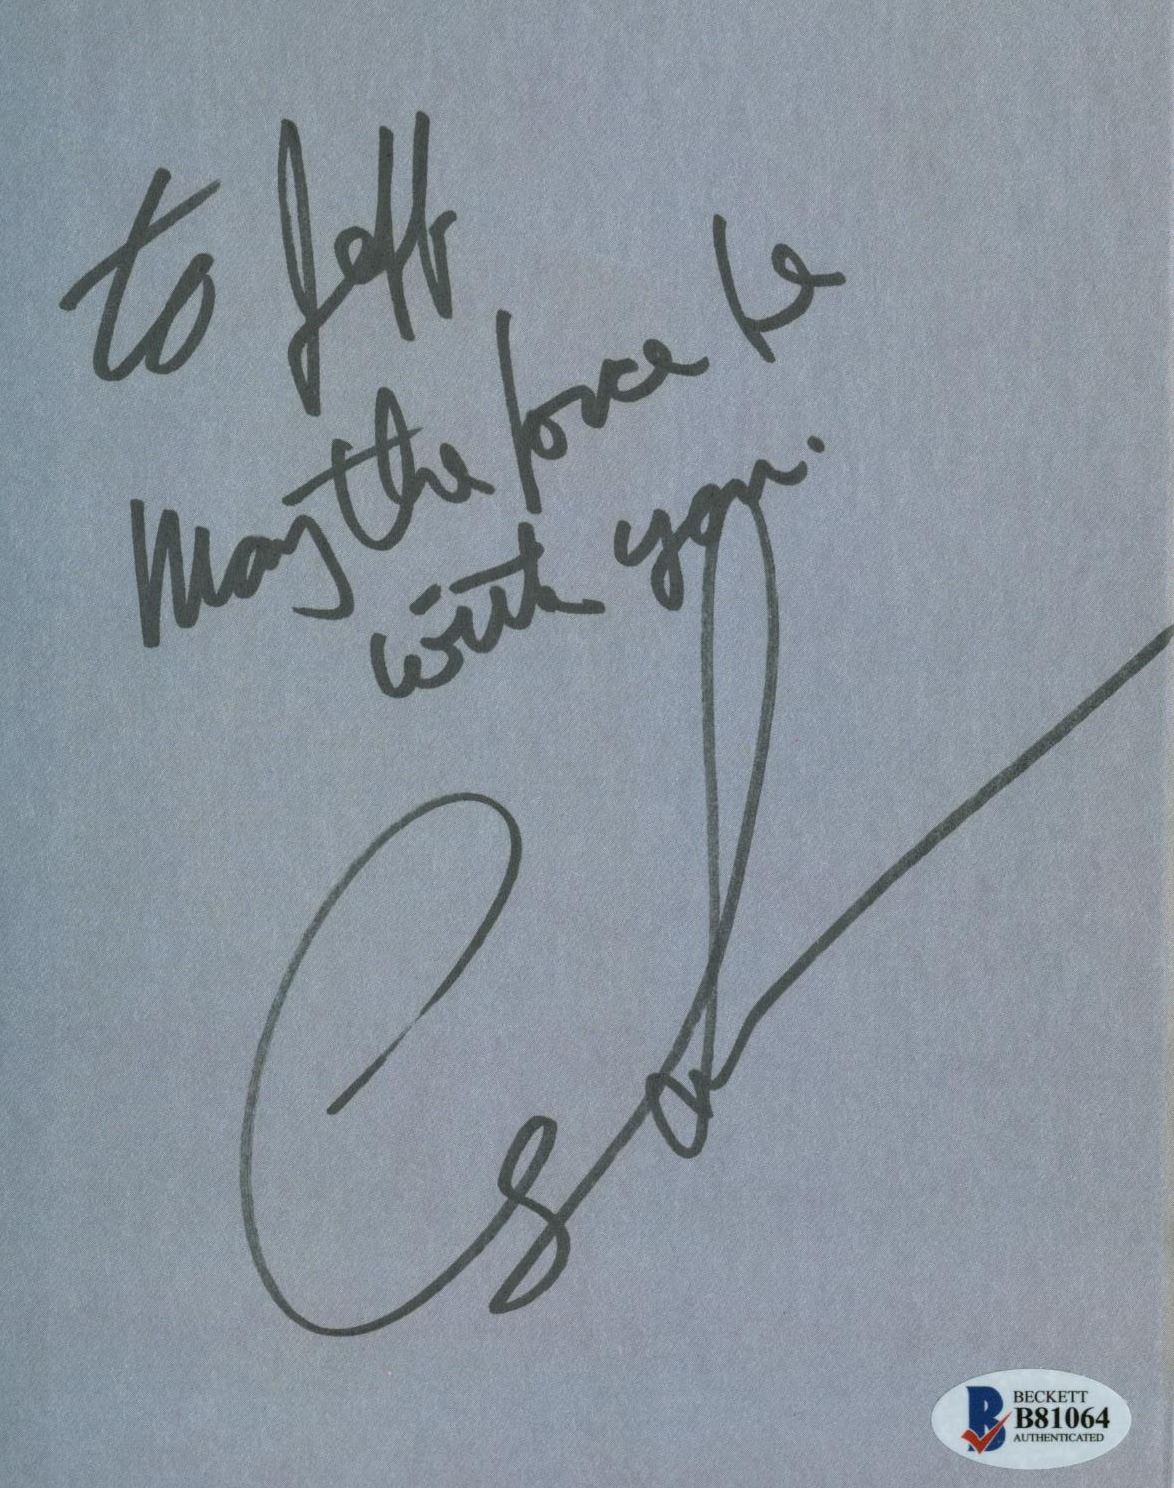 to Jeff
May the force be
with you.
BECKETT
B81064
AUTHENTICATED